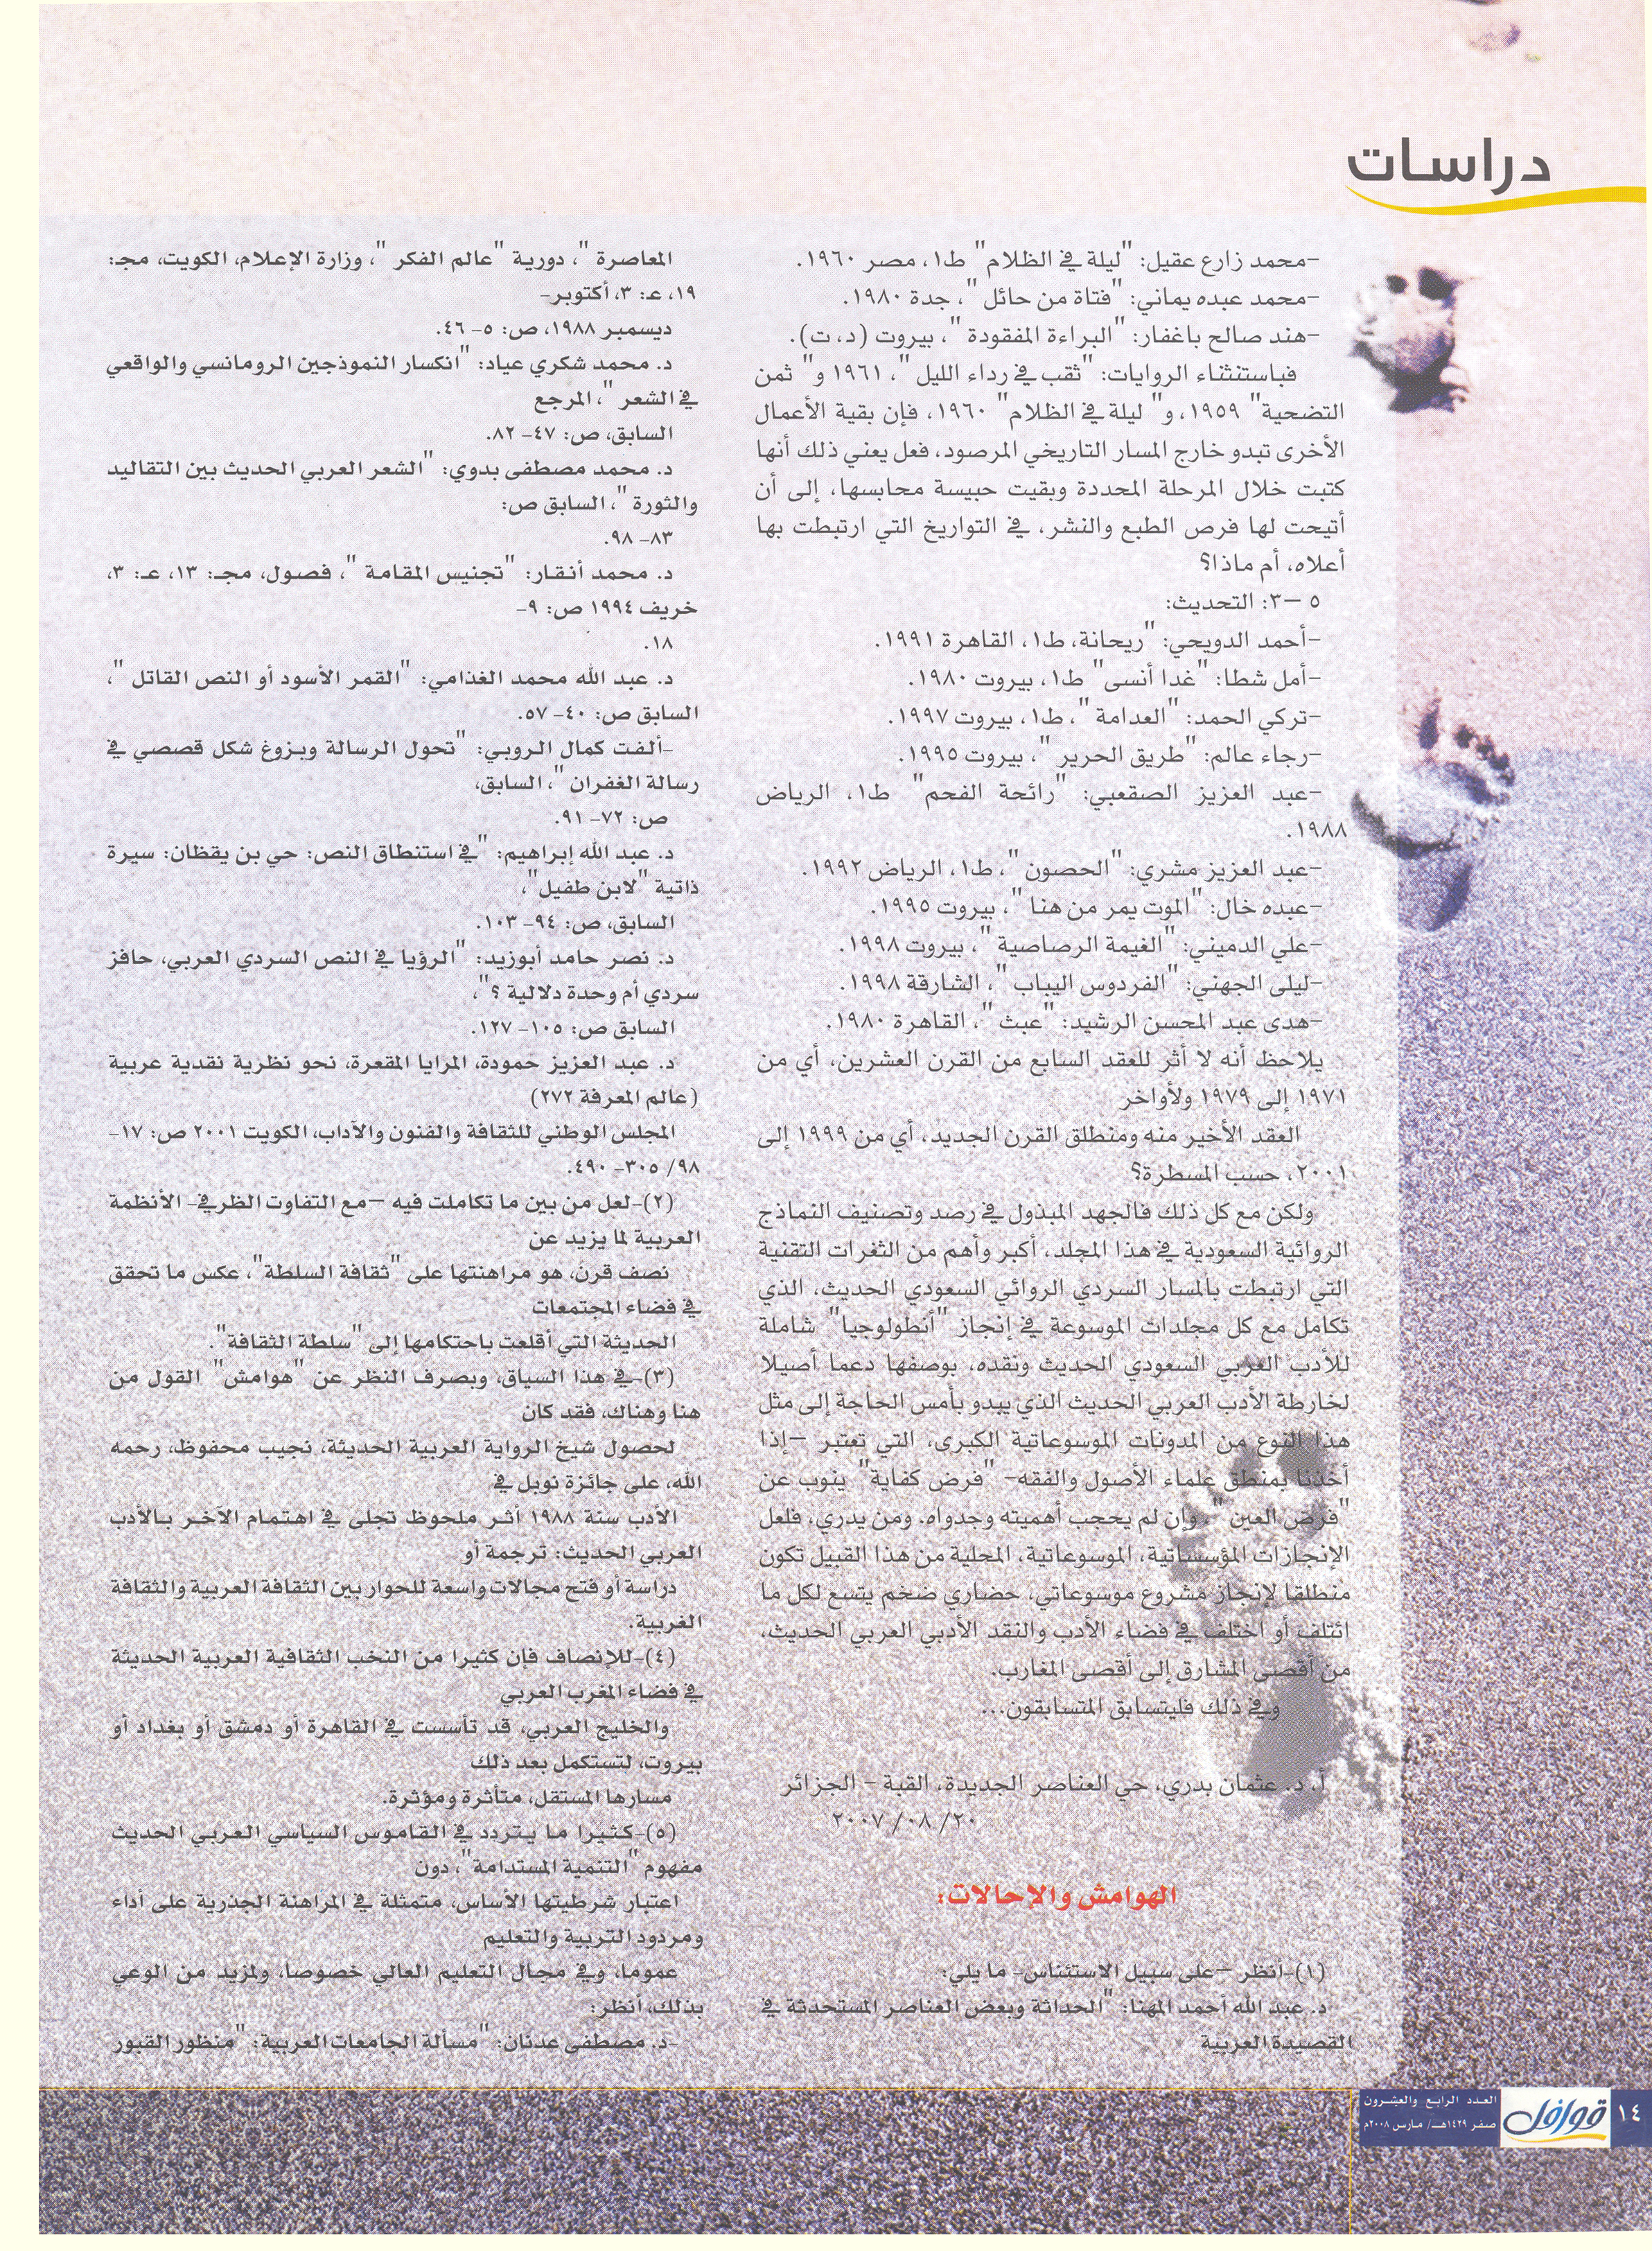 دراسات
–محمد زارع عقيل: "ليلة في الظلام" ط١، مصر ١٩٦٠.
–محمد عبده يماني: "فتاة من حائل"، جدة ١٩٨٠.
–هند صالح باغفار: "البراءة المفقودة"، بيروت (د، ت).
فباستنثناء الروايات: "ثقب في رداء الليل"، ١٩٦١ و" ثمن
التضحية" ١٩٥٩، و" ليلة في الظلام" ١٩٦٠، فإن بقية الأعمال
الأخرى تبدو خارج المسار التاريخي المرصود، فعل يعني ذلك أنها
كتبت خلال المرحلة المحددة وبقيت حبيسة محابسها، إلى أن
أتيحت لها فرص الطبع والنشر، في التواريخ التي ارتبطت بها
أعلاه، أم ماذا؟
٥ –٣: التحديث:
–أحمد الدويحي: "ريحانة، ط١، القاهرة ١٩٩١.
–أمل شطا: "غدا أنسى" ط١، بيروت ١٩٨٠.
–تركي الحمد: "العدامة"، ط١، بيروت ١٩٩٧.
–رجاء عالم: "طريق الحرير"، بيروت ١٩٩٥.
–عبد العزيز الصقعبي: "رائحة الفحم" ط١، الرياض
١٩٨٨.
–عبد العزيز مشري: "الحصون"، ط١، الرياض ١٩٩٢.
–عبده خال: "الموت يمر من هنا"، بيروت ١٩٩٥.
–علي الدميني: "الغيمة الرصاصية"، بيروت ١٩٩٨.
–ليلى الجهني: "الفردوس اليباب"، الشارقة ١٩٩٨.
–هدى عبد المحسن الرشيد: "عبث"، القاهرة ١٩٨٠.
يلاحظ أنه لا أثر للعقد السابع من القرن العشرين، أي من
١٩٧١ إلى ١٩٧٩ ولأواخر
العقد الأخير منه ومنطلق القرن الجديد، أي من ١٩٩٩ إلى
٢٠٠١، حسب المسطرة؟
ولكن مع كل ذلك فالجهد المبذول في رصد وتصنيف النماذج
الروائية السعودية في هذا المجلد، أكبر وأهم من الثغرات التقنية
التي ارتبطت بالمسار السردي الروائي السعودي الحديث، الذي
تكامل مع كل مجلدات الموسوعة في إنجاز "أنطولوجيا" شاملة
للأدب العربي السعودي الحديث ونقده، بوصفها دعما أصيلا
لخارطة الأدب العربي الحديث الذي يبدو بأمس الحاجة إلى مثل
هذا النوع من المدونات الموسوعاتية الكبرى، التي تعتبر –إذا
أخذنا بمنطق علماء الأصول والفقه– "فرض كفاية" ينوب عن
"فرض العين"، وإن لم يحجب أهميته وجدواه. ومن يدري، فلعل
الإنجازات المؤسساتية، الموسوعاتية، المحلية من هذا القبيل تكون
منطلقا لإنجاز مشروع موسوعاتي، حضاري ضخم يتسع لكل ما
ائتلف أو اختلف في فضاء الأدب والنقد الأدبي العربي الحديث،
من أقصى المشارق إلى أقصى المغارب.
وفي ذلك فليتسابق المتسابقون...
أ، د. عثمان بدري، حي العناصر الجديدة، القبة – الجزائر
٢٠/ ٠٨/ ٢٠٠٧
الهوامش والإحالات:
(١)–أنظر –على سبيل الاستئناس– ما يلي:
د. عبد الله أحمد المهنا: "الحداثة وبعض العناصر المستحدثة في
القصيدة العربية
المعاصرة"، دورية "عالم الفكر"، وزارة الإعلام، الكويت، مجـ:
١٩، عـ: ٣، أكتوبر–
ديسمبر ١٩٨٨، ص: ٥– ٤٦.
د. محمد شكري عياد: "انكسار النموذجين الرومانسي والواقعي
في الشعر"، المرجع
السابق، ص: ٤٧– ٨٢.
د. محمد مصطفى بدوي: "الشعر العربي الحديث بين التقاليد
والثورة"، السابق ص:
٨٣– ٩٨.
د. محمد أنقار: "تجنيس المقامة"، فصول، مجـ: ١٣، عـ: ٣،
خريف ١٩٩٤ ص: ٩–
١٨.
د. عبد الله محمد الغذامي: "القمر الأسود أو النص القاتل"،
السابق ص: ٤٠– ٥٧.
–ألفت كمال الروبي: "تحول الرسالة وبزوغ شكل قصصي في
رسالة الغفران"، السابق،
ص: ٧٢– ٩١.
د. عبد الله إبراهيم: "في استنطاق النص: حي بن يقظان: سيرة
ذاتية "لابن طفيل"،
السابق، ص: ٩٤– ١٠٣.
د. نصر حامد أبوزيد: "الرؤيا في النص السردي العربي، حافز
سردي أم وحدة دلالية ؟"،
السابق ص: ١٠٥– ١٢٧.
د. عبد العزيز حمودة، المرايا المقعرة، نحو نظرية نقدية عربية
(عالم المعرفة ٢٧٢)
المجلس الوطني للثقافة والفنون والآداب، الكويت ٢٠٠١ ص: ١٧–
٩٨/ ٣٠٥– ٤٩٠.
(٢)–لعل من بين ما تكاملت فيه –مع التفاوت الظرفي– الأنظمة
العربية لما يزيد عن
نصف قرن، هو مراهنتها على "ثقافة السلطة"، عكس ما تحقق
في فضاء المجتمعات
الحديثة التي أقلعت باحتكامها إلى "سلطة الثقافة".
(٣)–في هذا السياق، وبصرف النظر عن "هوامش" القول من
هنا وهناك، فقد كان
لحصول شيخ الرواية العربية الحديثة، نجيب محفوظ، رحمه
الله، على جائزة نوبل في
الأدب سنة ١٩٨٨ أثر ملحوظ تجلى في اهتمام الآخر بالأدب
العربي الحديث: ترجمة أو
دراسة أو فتح مجالات واسعة للحوار بين الثقافة العربية والثقافة
الغربية.
(٤)–للإنصاف فإن كثيرا من النخب الثقافية العربية الحديثة
في فضاء المغرب العربي
والخليج العربي، قد تأسست في القاهرة أو دمشق أو بغداد أو
بيروت، لتستكمل بعد ذلك
مسارها المستقل، متأثرة ومؤثرة.
(٥)–كثيرا ما يتردد في القاموس السياسي العربي الحديث
مفهوم "التنمية المستدامة"، دون
اعتبار شرطيتها الأساس، متمثلة في المراهنة الجذرية على أداء
ومردود التربية والتعليم
عموما، وفي مجال التعليم العالي خصوصا، ولمزيد من الوعي
بذلك، أنظر:
–د. مصطفى عدنان: "مسألة الجامعات العربية: "منظور القبور
١٤
قوافل
العدد الرابع والعشرون
صفر ١٤٢٩هـ/ مارس ٢٠٠٨م